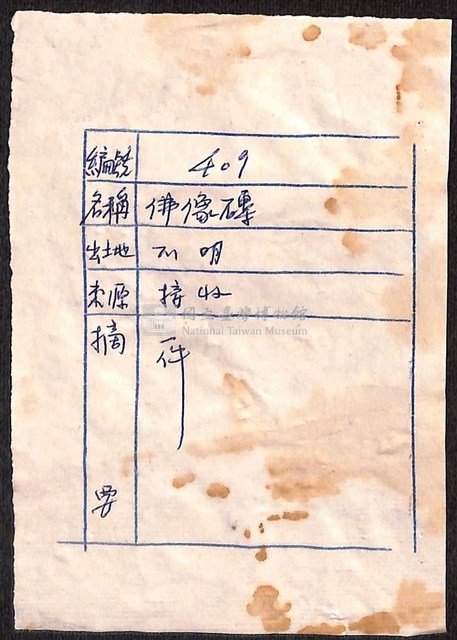 編號 409
名稱 佛像磚
出土地 不明
來源 接收
摘要 一件
國立臺灣博物館
National Taiwan Museum